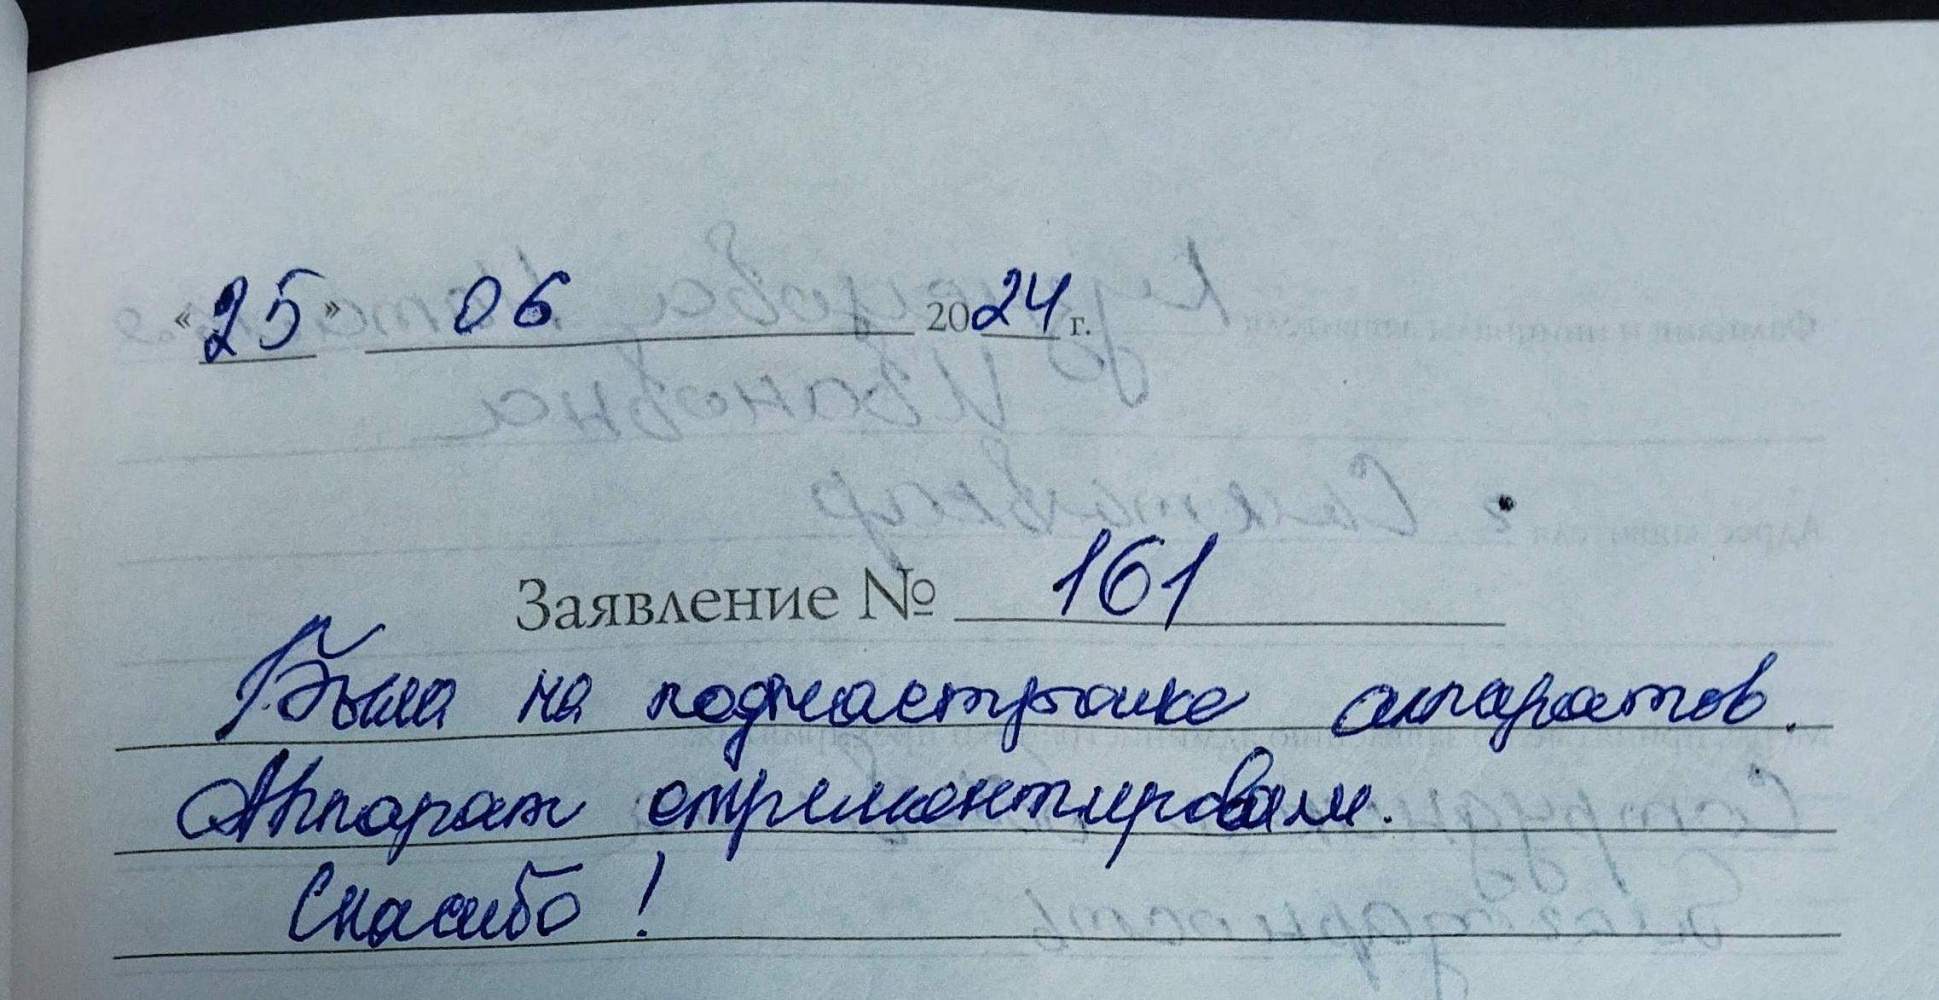 «25» 06 2024 г.
Заявление № 161
Была на поднастройке аппаратов.
Аппарат отремонтировали.
Спасибо!